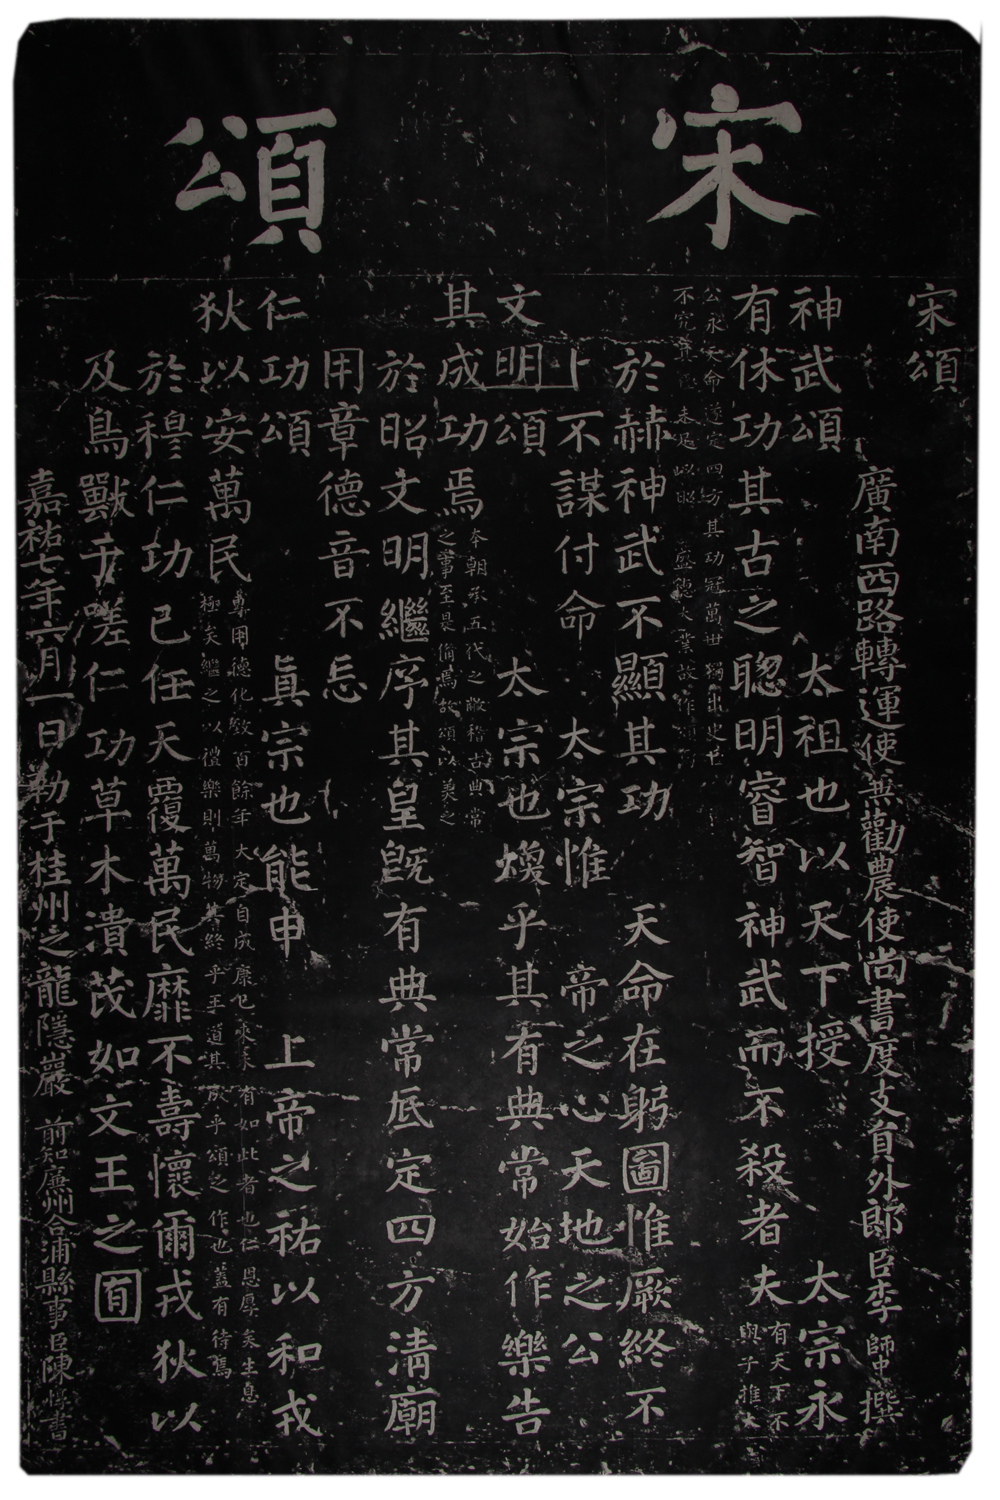 宋頌
宋頌
廣南西路轉運使兼勸農使尚書度支員外郎臣李師中撰
神武頌 太祖也以天下授 太宗永
有休功其古之聰明睿智神武而不殺者夫
有天下不
與子推大
公永天命遂定四方其功冠萬世獨出史臣
不究其 未足以昭 盛德大業故作頌
於赫神武不顯其功 天命在躬圖惟厥終不
卜不謀付命 太宗惟 帝之心天地之公
文明頌 太宗也煥乎其有典常始作樂告
其成功焉
本朝承五代之敝稽古典常
之事至是備焉故頌以美之
於昭文明繼序其皇既有典常厎定四方清廟
用章德音不忘
仁功頌 眞宗也能申 上帝之祐以和戎
狄以安萬民
專用德化數百餘年大定自成康已來未有如此者也仁恩厚矣生息
極矣繼之以禮樂則萬物其終乎王道其成乎頌之作也蓋有待焉
於穆仁功已任天覆萬民靡不壽懷爾戎狄以
及鳥獸于嗟仁功草木潰茂如文王之囿
嘉祐七年六月一日勒于桂州之龍隱巖 前知廉州合浦縣事臣陳惇書